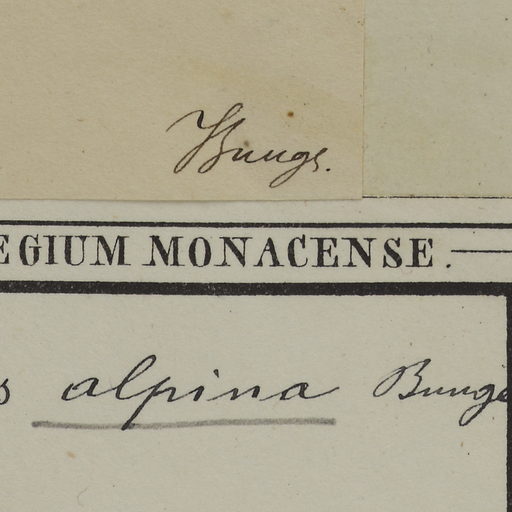 Bunge.
EGIUM MONACENSE.
s alpina Bunge